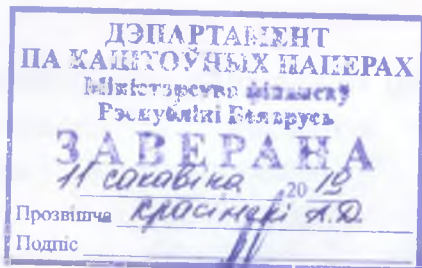 ДЭПАРТАМЕНТ
ПА КАШТОЎНЫХ ПАПЕРАХ
Міністэрства фінансаў
Рэспублікі Беларусь
ЗАВЕРАНА
11 сакавіка 2019
Прозвішча Красінскі А.Д.
Подпіс